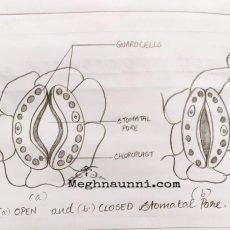 GUARDCELLS
STOMATAL
PORE
CHLOROPLAST
(a)
(b)
Meghnaunni.com
(a) OPEN and (b) CLOSED Stomatal Pore.